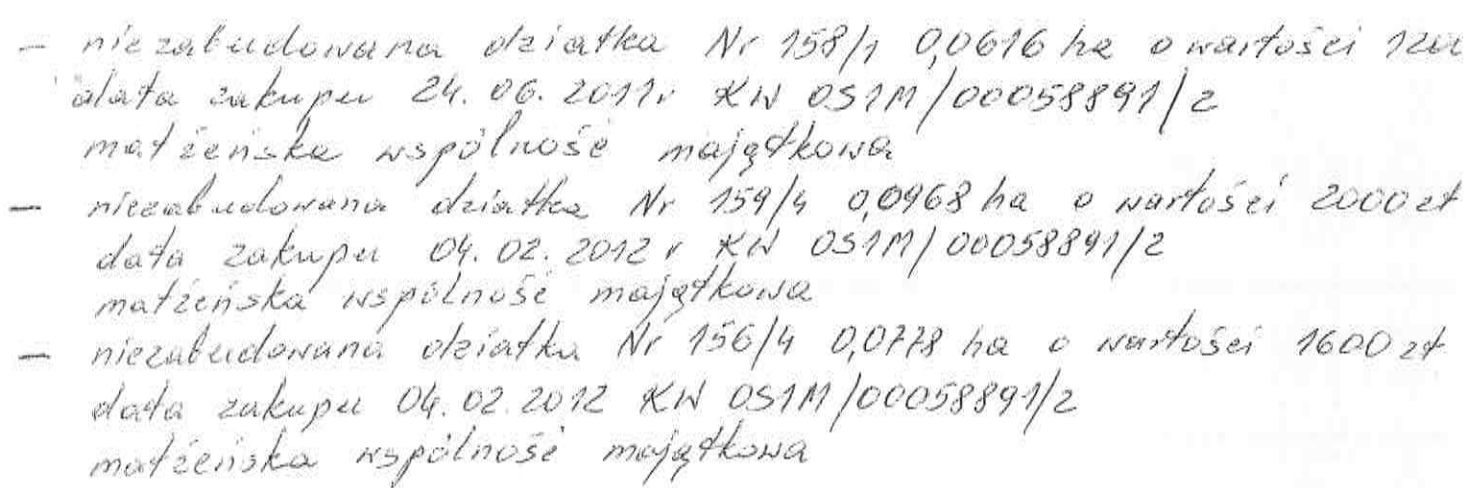 - niezabudowana działka Nr 158/1 0,0616 ha o wartości
data zakupu 24.06.2011r KW OS1M/00058891/2
małżeńska wspólność majątkowa
- niezabudowana działka Nr 159/4 0,0968 ha o wartości 2000 zł
data zakupu 04.02.2012 r KW OS1M/00058891/2
małżeńska wspólność majątkowa
- niezabudowana działka Nr 156/4 0,0778 ha o wartości 1600 zł
data zakupu 04.02.2012 KW OS1M/00058891/2
małżeńska wspólność majątkowa